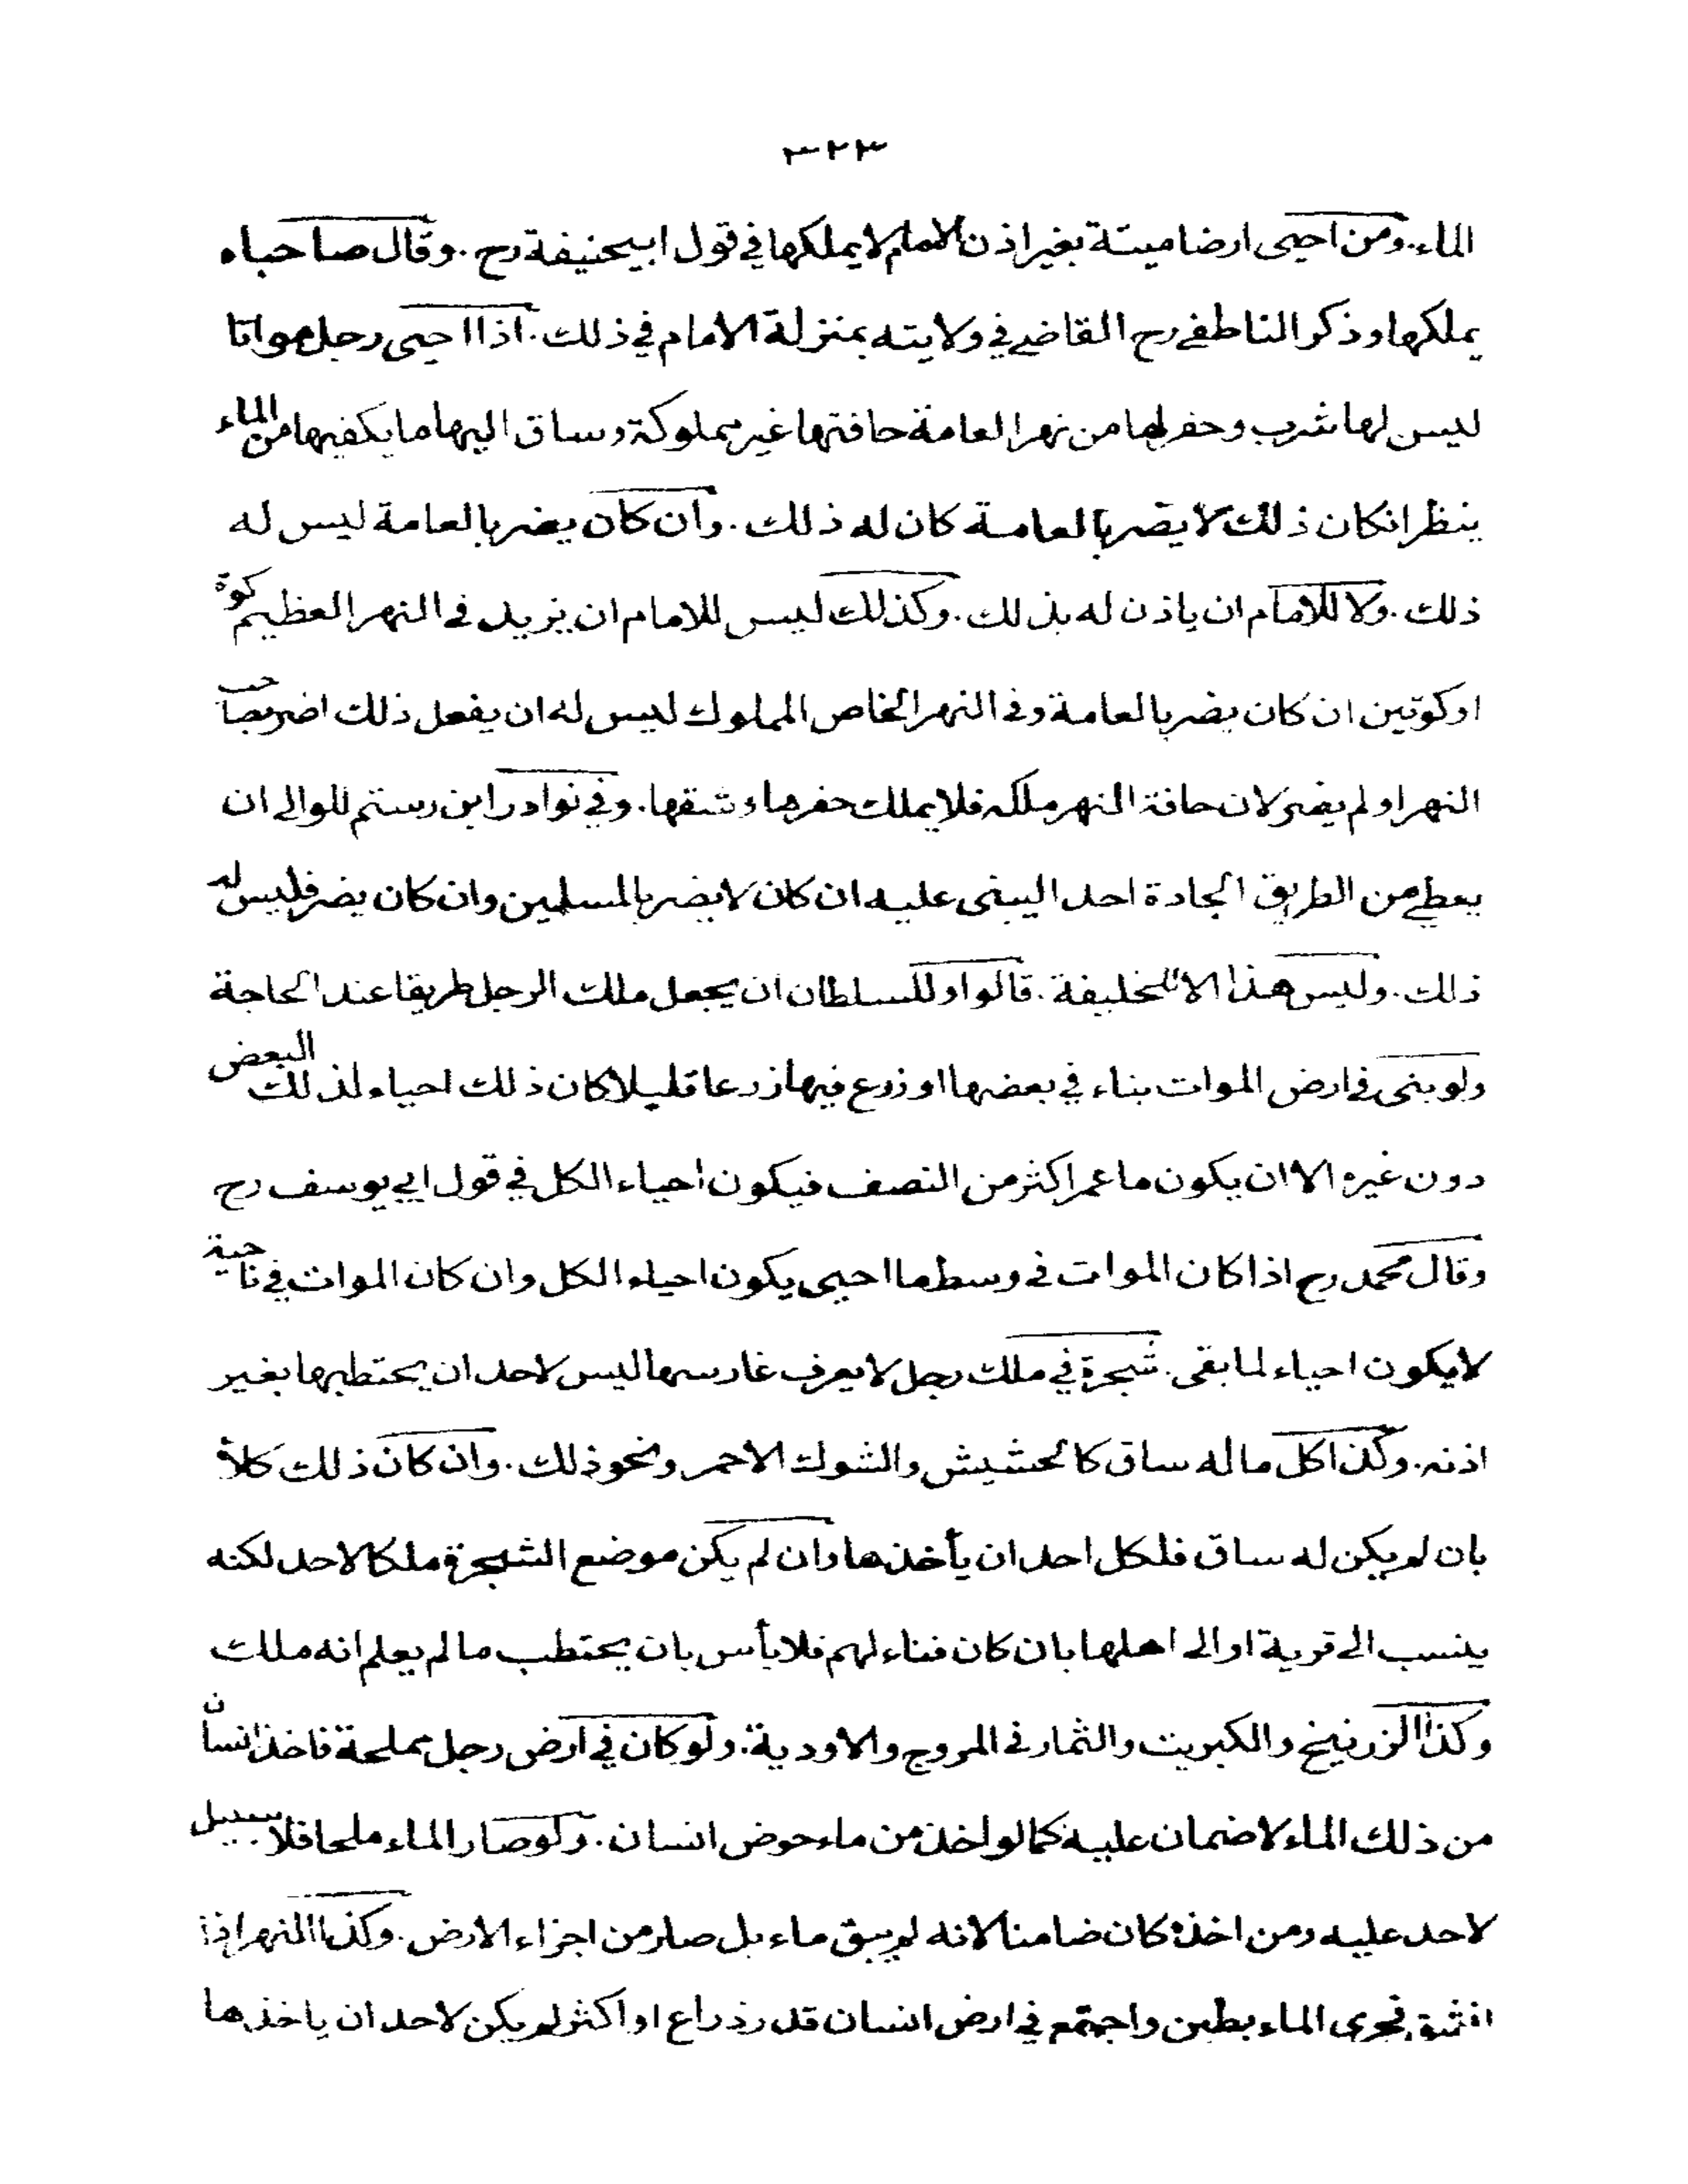 ٣٢٣
الماء. ومن احيى ارضا ميتة بغير اذن الامام لا يملكها في قول ابيحنيفة رح. وقال صاحباه
يملكها وذكر الناطفي رح القاضي في ولايته بمنزلة الامام في ذلك. اذا احيى رجل مواتا
ليس لها شرب وحفر لها من نهر العامة حافتها غير مملوكة وساق اليها ما يكفيها من الماء
ينظر انكان ذلك لا يضر بالعامة كان له ذلك. وان كان يضر بالعامة ليس له
ذلك. ولا للامام ان ياذن له بذلك. وكذلك ليس للامام ان يزيد في النهر العظيم كوة
او كوتين ان كان يضر بالعامة وفي النهر الخاص المملوك ليس له ان يفعل ذلك اضر بصاحب
النهر او لم يضر لان حافة النهر ملكه فلا يملك حفرها وشقها. وفي نوادر ابن رستم للوالي ان
يعطي من الطريق الجادة احدا ليبنى عليه ان كان لا يضر بالمسلمين وان كان يضر فليس له
ذلك. وليس هذا الا للخليفة. قالوا وللسلطان ان يجعل ملك الرجل طريقا عند الحاجة
ولو بنى في ارض الموات بناء في بعضها او زرع فيها زرعا قليلا كان ذلك احياء لذلك البعض
دون غيره الا ان يكون ما عمر اكثر من النصف فيكون احياء الكل في قول ابي يوسف رح
وقال محمد رح اذا كان الموات في وسط ما احيى يكون احياء الكل وان كان الموات في ناحية
لا يكون احياء لما بقى. شجرة في ملك رجل لا يعرف غارسها ليس لاحد ان يحتطبها بغير
اذنه. وكذا كل ما له ساق كالحشيش والشوك الاحمر ونحو ذلك. وان كان ذلك كلأ
بان لم يكن له ساق فلكل احد ان يأخذها وان لم يكن موضع الشجرة ملكا لاحد لكنه
ينسب الى قرية او الى اهلها بان كان فناء لهم فلا بأس بان يحتطب ما لم يعلم انه ملك
وكذا الزرنيخ والكبريت والثمار في المروج والاودية. ولو كان في ارض رجل مملحة فاخذ انسان
من ذلك الماء لا ضمان عليه كما لو اخذ من ماء حوض انسان. ولو صار الماء ملحا فلا سبيل
لاحد عليه ومن اخذه كان ضامنا لانه لم يبق ماء بل صار من اجزاء الارض. وكذا النهر اذا
انشق فجرى الماء بطين واجتمع في ارض انسان قدر ذراع او اكثر لم يكن لاحد ان ياخذها